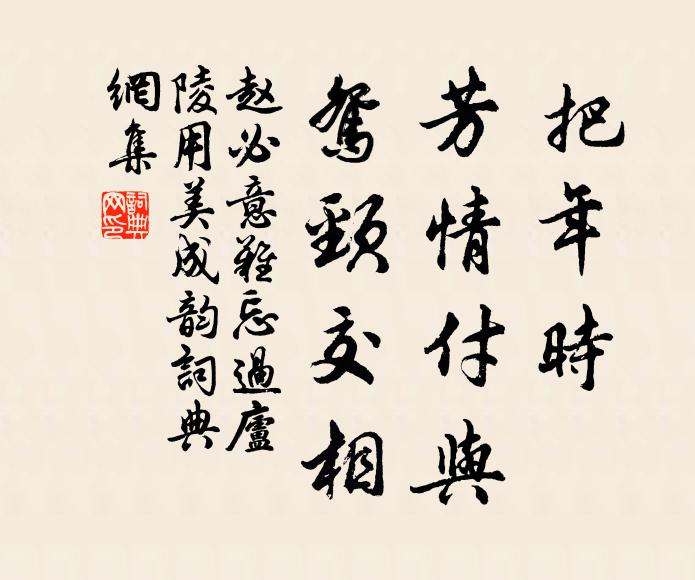 把年時
芳情付與
鴛頸交相
赵必意難忘過廬
陵用美成韵詞典
網集
詞典網印